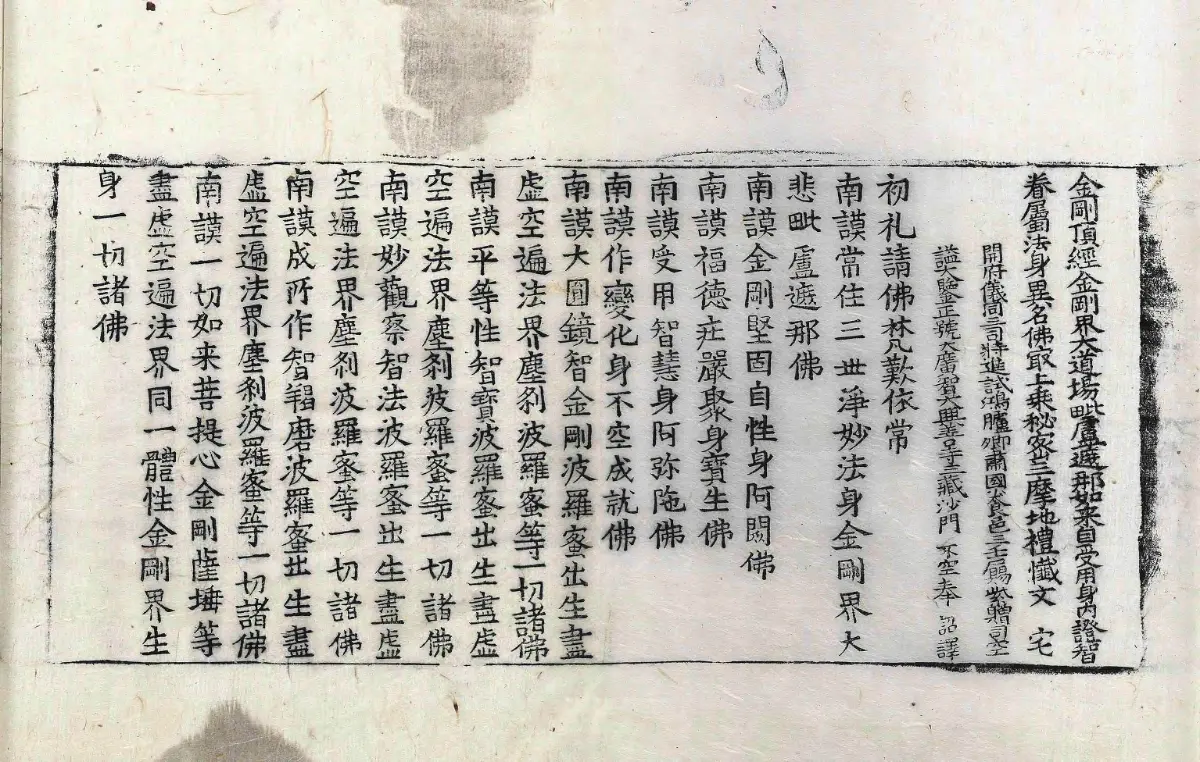 金剛頂經金剛界大道場毗盧遮那如来自受用身內證智
眷屬法身異名佛㝡上乘秘密三摩地禮懺文 宅
開府儀同三司特進試鴻臚卿肅國公食邑三千户賜紫贈司空
謚大鑒正號大廣智大興善寺三藏沙門 不空奉 詔譯
初礼請佛林凡歎依常
南謨常住三世淨妙法身金剛界大
悲毗盧遮那佛
南謨金剛堅固自性身阿閦佛
南謨福德庄嚴聚身寶生佛
南謨受用智慧身阿弥陁佛
南謨作變化身不空成就佛
南謨大圓鏡智金剛波羅蜜出生盡
虛空遍法界塵刹波羅蜜等一切諸佛
南謨平等性智寶波羅蜜出生盡虛
空遍法界塵刹波羅蜜等一切諸佛
南謨妙觀察智法波羅蜜出生盡虛
空遍法界塵刹波羅蜜等一切諸佛
南謨成所作智羯磨波羅蜜出生盡
虛空遍法界塵刹波羅蜜等一切諸佛
南謨一切如来菩提心金剛薩埵等
盡虛空遍法界同一體性金剛界生
身一切諸佛